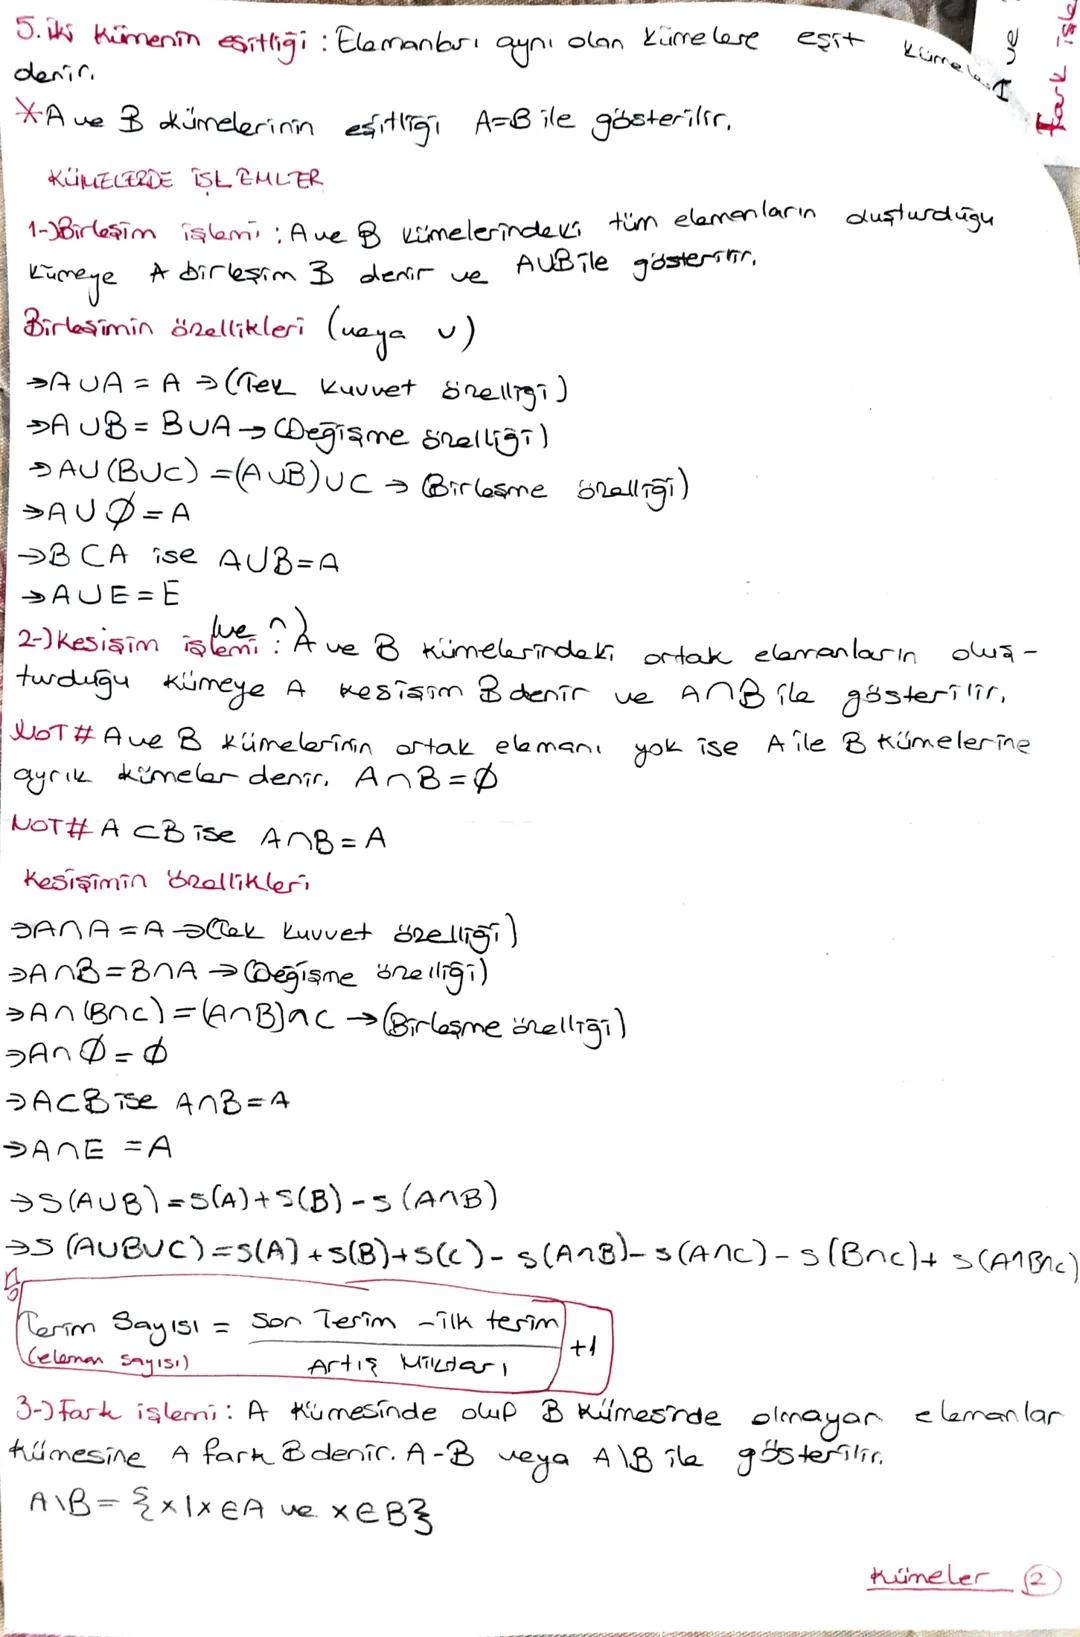 5. iki kümenin eşitliği : Elemanları aynı olan kümelere eşit kümeler
denir.
*A ve B kümelerinin eşitliği A=B ile gösterilir.
KÜMELERDE İŞLEMLER
1-)Birleşim işlemi : A ve B kümelerindeki tüm elemanların oluşturduğu
kümeye A birleşim B denir ve AUB ile gösterilir.
Birleşimin özellikleri (veya ∪)
→A∪A = A → (Tek kuvvet özelliği)
→A∪B = B∪A → (Değişme özelliği)
→A∪(B∪C) = (A∪B)∪C → (Birleşme özelliği)
→A∪∅ = A
→B⊂A ise A∪B=A
→A∪E = E
(ve ∩)
2-)Kesişim işlemi : A ve B kümelerindeki ortak elemanların oluş-
turduğu kümeye A kesişim B denir ve A∩B ile gösterilir.
NOT# A ve B kümelerinin ortak elemanı yok ise A ile B kümelerine
ayrık kümeler denir. A∩B=∅
NOT# A⊂B ise A∩B=A
Kesişimin özellikleri
→A∩A = A →(Tek kuvvet özelliği)
→A∩B = B∩A → (Değişme özelliği)
→A∩(B∩C) = (A∩B)∩C → (Birleşme özelliği)
→A∩∅ = ∅
→A⊂B ise A∩B=A
→A∩E = A
→S(A∪B) = S(A)+S(B)-S(A∩B)
→S(A∪B∪C) = S(A)+S(B)+S(C)-S(A∩B)-S(A∩C)-S(B∩C)+S(A∩B∩C)
Terim Sayısı = Son Terim - ilk terim
+1
(eleman sayısı) Artış Miktarı
3-) Fark işlemi: A kümesinde olup B kümesinde olmayan elemanlar
kümesine A fark B denir. A-B veya A\B ile gösterilir.
A\B= {x|x∈A ve x∈B}
Kümeler 2
ve
Fark işle